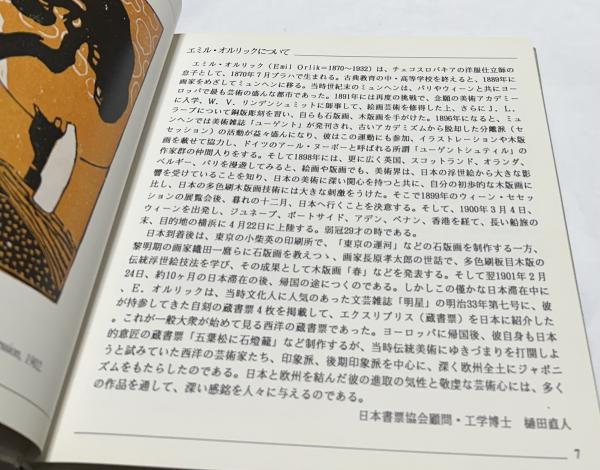 エミル・オルリックについて
エミル・オルリック（Emil Orlik＝1870～1932）は、チェコスロバキアの洋服仕立師の
息子として、1870年7月プラハで生まれる。古典教育の中・高等学校を終えると、1889年に
画家をめざしてミュンヘンに移る。当時世紀末のミュンヘンは、パリやウィーンと共にヨー
ロッパで最も芸術の盛んな都市であった。1891年には再度の挑戦で、念願の美術アカデミー
に入学、W. V. リンデンシュミットに師事して、絵画芸術を修得した上、さらに J. L.
ラープについて銅版彫刻を習い、自らも石版画、木版画を手がけた。1896年になると、ミュ
ンヘンでは美術雑誌「ユーゲント」が発刊され、古いアカデミズムから脱却した分離派（セ
セッション）の活動が益々盛んになり、彼はこの運動にも参加、イラストレーションや木版
画を載せて協力し、ドイツのアール・ヌーボーと呼ばれる所謂「ユーゲントシュティル」の
作家群の仲間入りをする。そして1898年には、更に広く英国、スコットランド、オランダ、
ベルギー、パリを漫遊してみると、絵画や版画でも、美術界は、日本の浮世絵から大きな影
響を受けていることを知り、日本の美術に深い関心を持つと共に、自分の初歩的な木版画に
比し、日本の多色刷木版画技術には大きな刺激をうけた。そこで1899年のウィーン・セセッ
ションの展覧会後、暮れの十二月、日本へ行くことを決意する。そして、1900年3月4日、
ウィーンを出発し、ジュネーブ、ポートサイド、アデン、ペナン、香港を経て、長い船旅の
末、目的地の横浜に4月22日に上陸する。弱冠29才の時である。
日本到着後は、東京の小柴英の印刷所で、「東京の運河」などの石版画を制作する一方、
黎明期の画家織田一磨らに石版画を教えつゝ、画家長原孝太郎の世話で、多色刷板目木版の
伝統浮世絵技法を学び、その成果として木版画「春」などを発表する。そして翌1901年2月
24日、約10ヶ月の日本滞在の後、帰国の途につくのである。しかしこの僅かな日本滞在中
に、E. オルリックは、当時文化人に人気のあった文芸雑誌「明星」の明治33年第七号に、彼
が持参してきた自刻の蔵書票4枚を掲載して、エクスリブリス（蔵書票）を日本に紹介した
。これが一般大衆が始めて見る西洋の蔵書票であった。ヨーロッパに帰国後、彼自身も日本
的意匠の蔵書票「五葉松に石燈籠」など制作するが、当時伝統美術にゆきづまりを打開しよ
うと試みていた西洋の芸術家たち、印象派、後期印象派を中心に、深く欧州全土にジャポニ
ズムをもたらしたのである。日本と欧州を結んだ彼の進取の気性と敬虔な芸術心には、多く
の作品を通して、深い感銘を人々に与えるのである。
日本書票協会顧問・工学博士　樋田直人
7